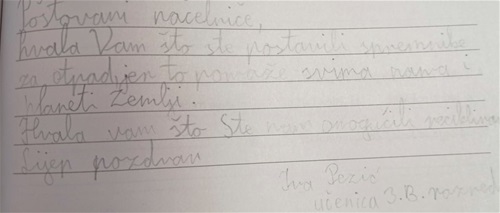 Poštovani načelniče,
hvala Vam što ste postavili spremnike
za otpad jer to pomaže svima nama i
planeti Zemlji.
Hvala vam što Ste nam omogućili
Lijep pozdrav
Pezić
učenica 3.B. razred